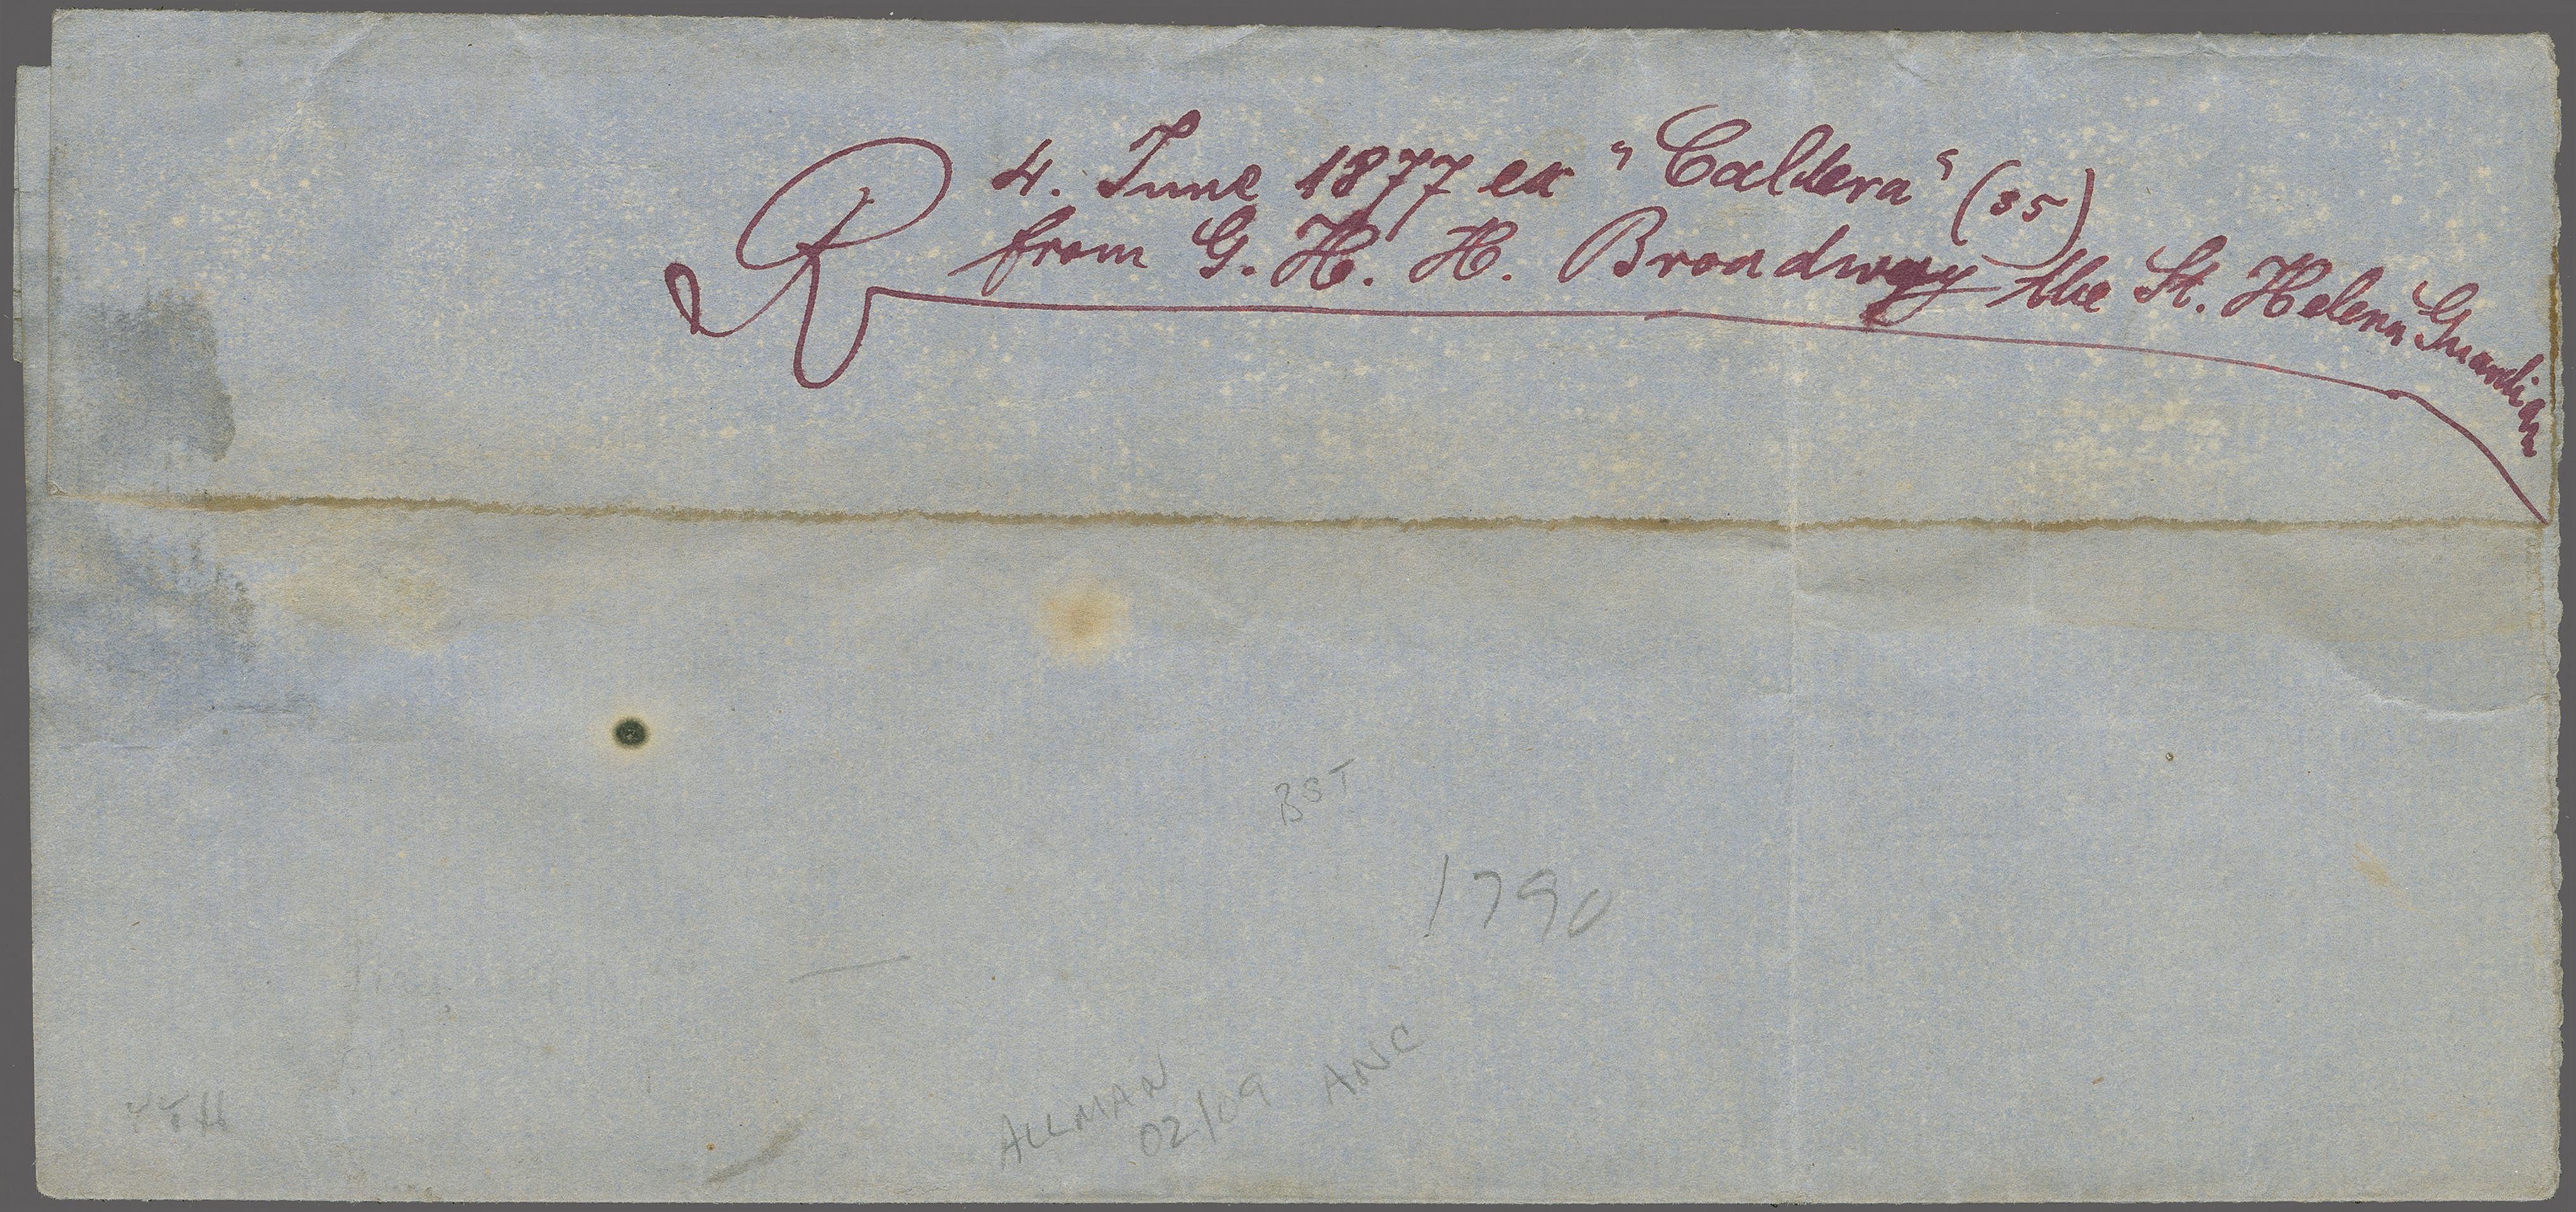 R 4. June 1877 ex "Caldera" (35)
from G. H. H. Broadway the St. Helena Guardian
BST
1790
ALLMAN
02/09 ANC